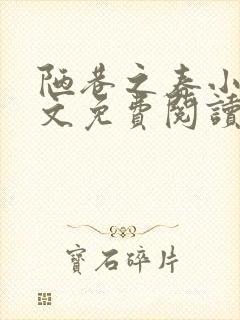 陋巷之春小
文免費閱讀
寶石碎片